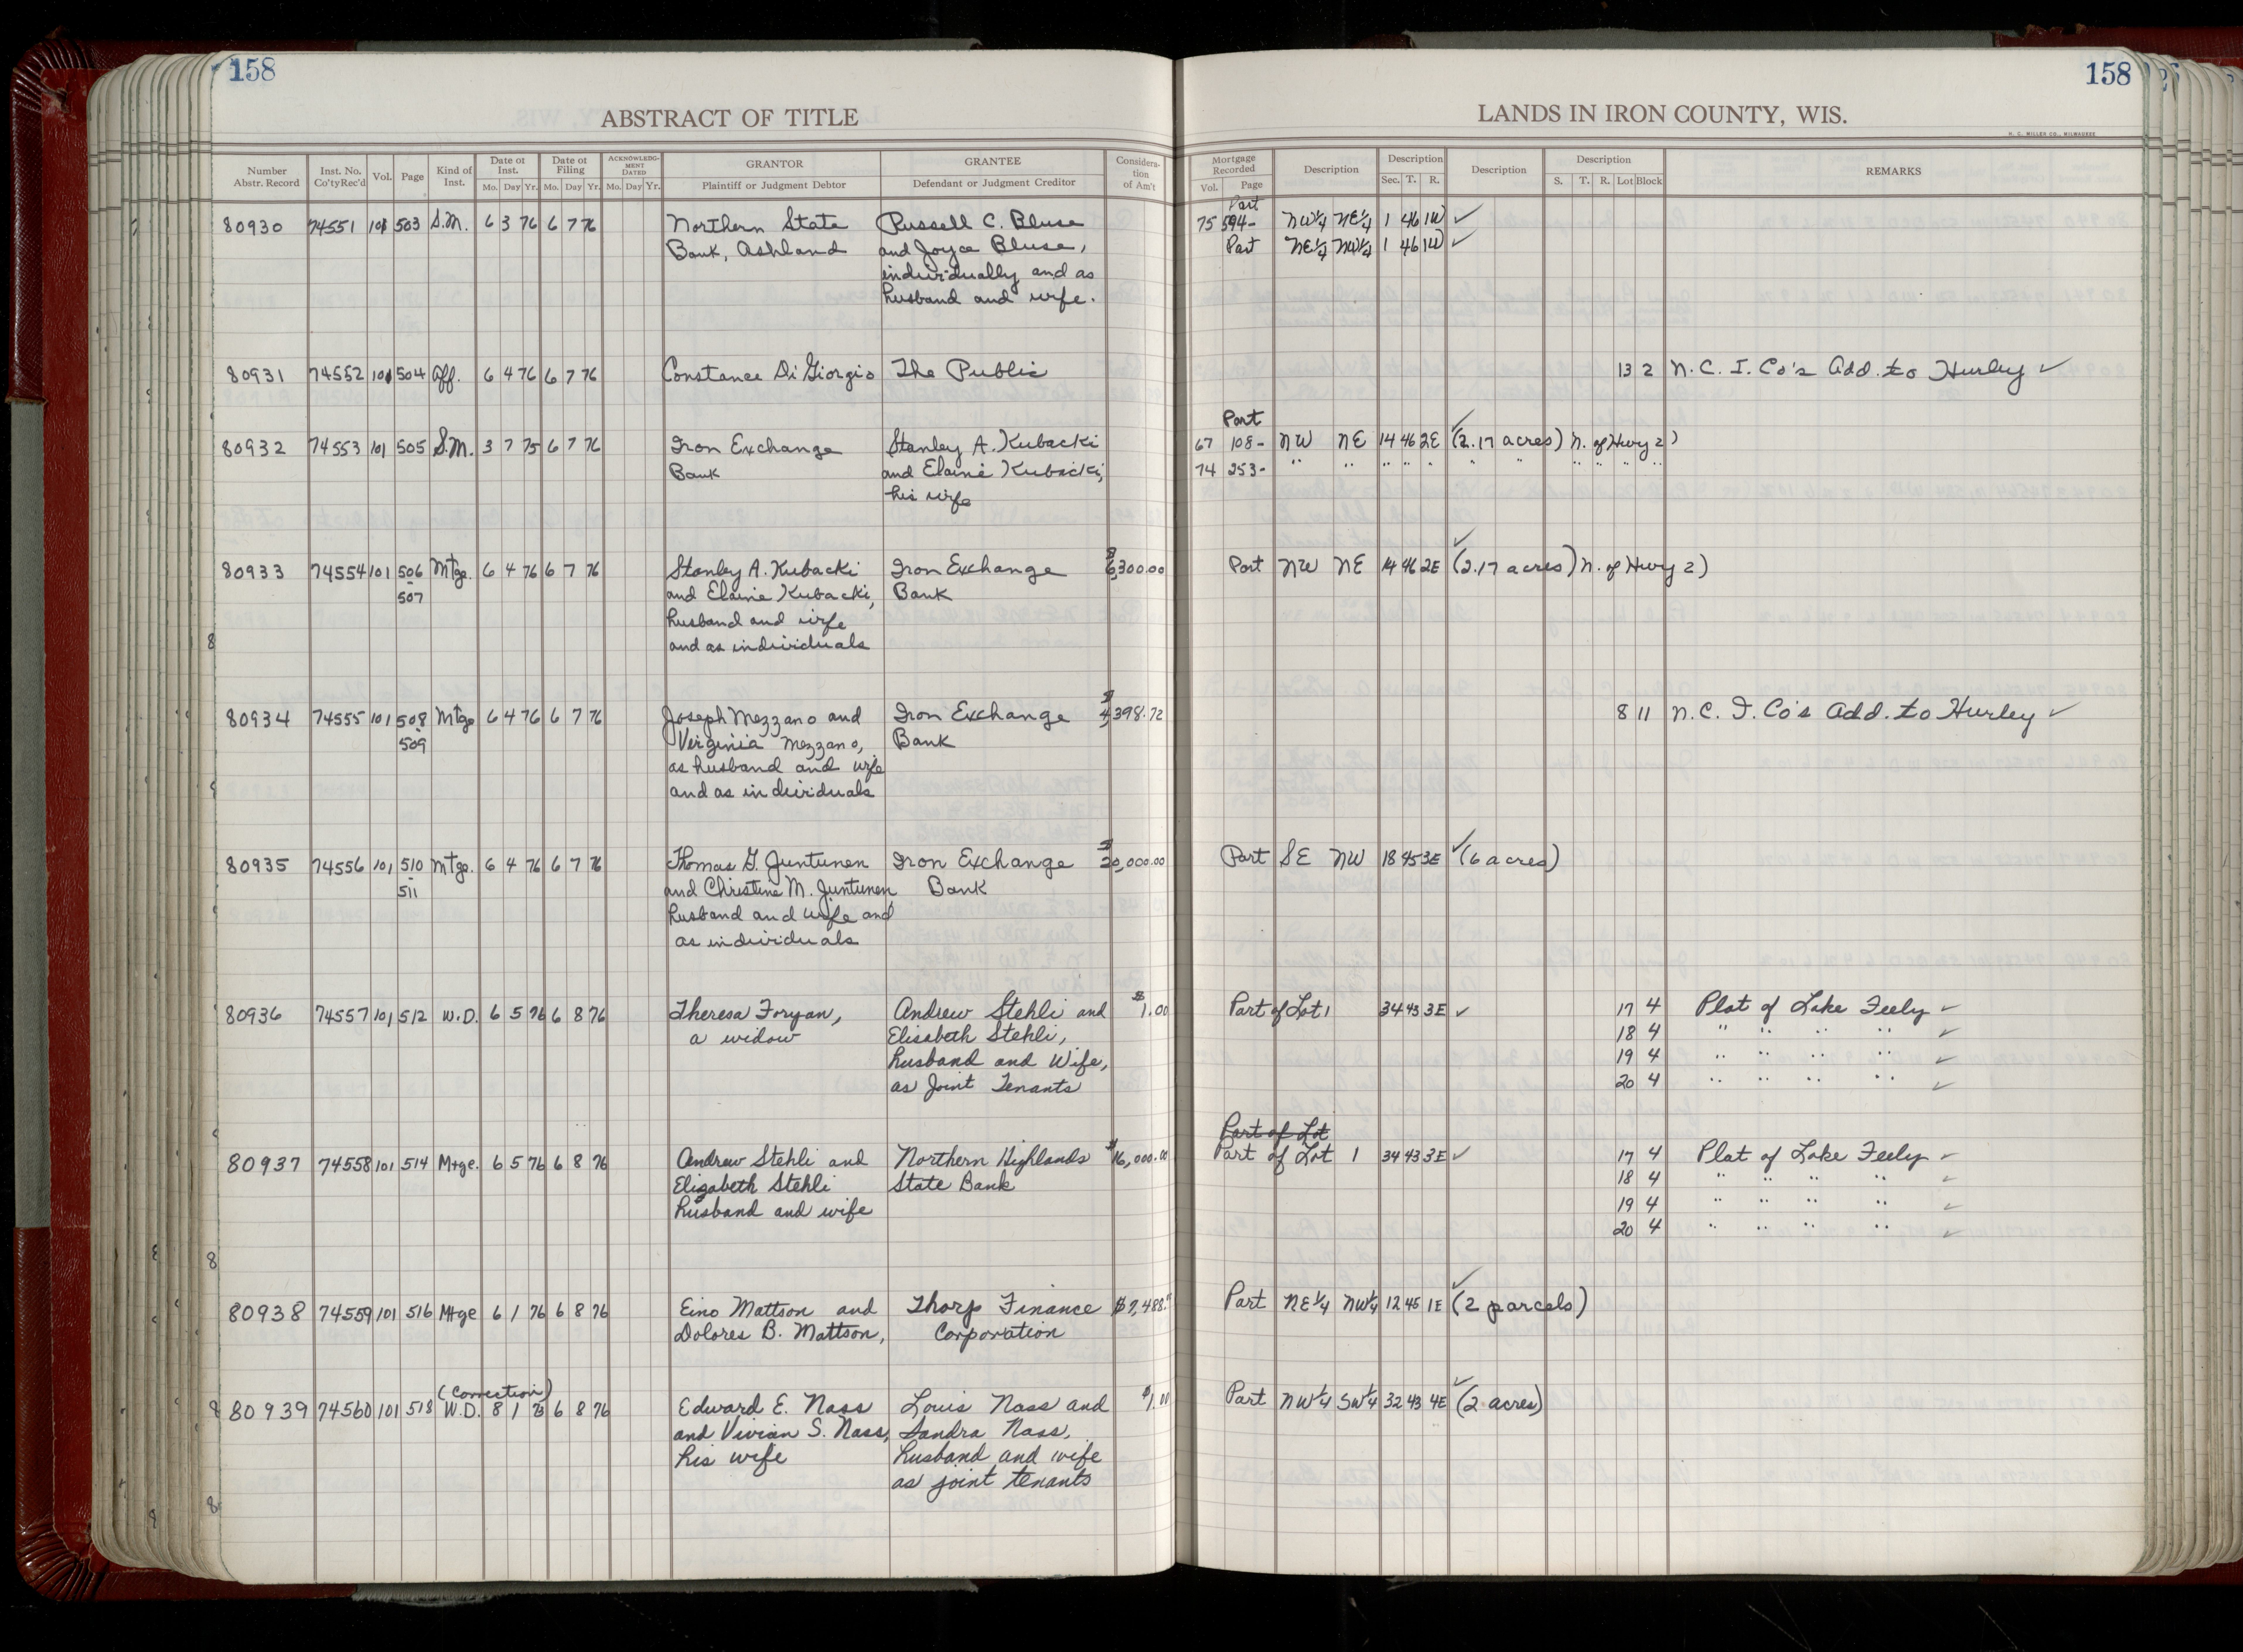 158
158
ABSTRACT OF TITLE
LANDS IN IRON COUNTY, WIS.
H. C. MILLER CO., MILWAUKEE
Number Abstr. Record Inst. No. Co'tyRec'd Vol. Page Kind of Inst. Date of Inst. Mo. Day Yr. Date of Filing Mo. Day Yr. ACKNOWLEDGMENT DATED Mo. Day Yr. GRANTOR Plaintiff or Judgment Debtor GRANTEE Defendant or Judgment Creditor Consideration of Am't
Mortgage Recorded Vol. Page Description Description Sec. T. R. Description Description S. T. R. Lot Block REMARKS
80930 74551 101 503 S.M. 6 3 76 6 7 76 Northern State Russell C. Bluse 75 594- Part NW¼ NE¼ 1 46 1W ✓
Bank, Ashland and Joyce Bluse, Part NE¼ NW¼ 1 46 1W ✓
individually and as
husband and wife.
80931 74552 101 504 Aff. 6 4 76 6 7 76 Constance Di Giorgio The Public 13 2 N.C.I. Co's Add. to Hurley ✓
Part
80932 74553 101 505 S.M. 3 7 75 6 7 76 Iron Exchange Stanley A. Kubacki 67 108- NW NE 14 46 2E ✓ (2.17 acres) N. of Hwy 2)
Bank and Elaine Kubacki, 74 253- " " " " " " " " " " "
his wife
80933 74554 101 506 Mtge. 6 4 76 6 7 76 Stanley A. Kubacki Iron Exchange $6,300.00 Part NW NE 14 46 2E ✓ (2.17 acres) N. of Hwy 2)
- 507 and Elaine Kubacki, Bank
husband and wife
and as individuals
80934 74555 101 508 Mtge 6 4 76 6 7 76 Joseph Mezzano and Iron Exchange $4,398.72 8 11 N.C.I. Co's Add. to Hurley ✓
- 509 Virginia Mezzano, Bank
as husband and wife
and as individuals
80935 74556 101 510 Mtge. 6 4 76 6 7 76 Thomas G. Juntunen Iron Exchange $20,000.00 Part SE NW 18 45 3E ✓ (6 acres)
- 511 and Christine M. Juntunen, Bank
husband and wife and
as individuals
80936 74557 101 512 W.D. 6 5 76 6 8 76 Theresa Foryan, Andrew Stehli and $1.00 Part of Lot 1 34 43 3E ✓ 17 4 Plat of Lake Feely ✓
a widow Elisabeth Stehli, 18 4 " " " " ✓
husband and Wife, 19 4 " " " " ✓
as Joint Tenants 20 4 " " " " ✓
Part of Lot
80937 74558 101 514 Mtge. 6 5 76 6 8 76 Andrew Stehli and Northern Highlands $16,000.00 Part of Lot 1 34 43 3E ✓ 17 4 Plat of Lake Feely ✓
Elizabeth Stehli State Bank 18 4 " " " " ✓
husband and wife 19 4 " " " " ✓
20 4 " " " " ✓
80938 74559 101 516 Mtge 6 1 76 6 8 76 Eino Mattson and Thorp Finance Part NE¼ NW¼ 12 45 1E ✓ (2 parcels)
Dolores B. Mattson, Corporation
(Correction)
80939 74560 101 518 W.D. 8 1 6 8 76 Edward E. Nass Louis Nass and $1.00 Part NW¼ SW¼ 32 43 4E ✓ (2 acres)
and Vivian S. Nass, Sandra Nass,
his wife husband and wife
as joint tenants